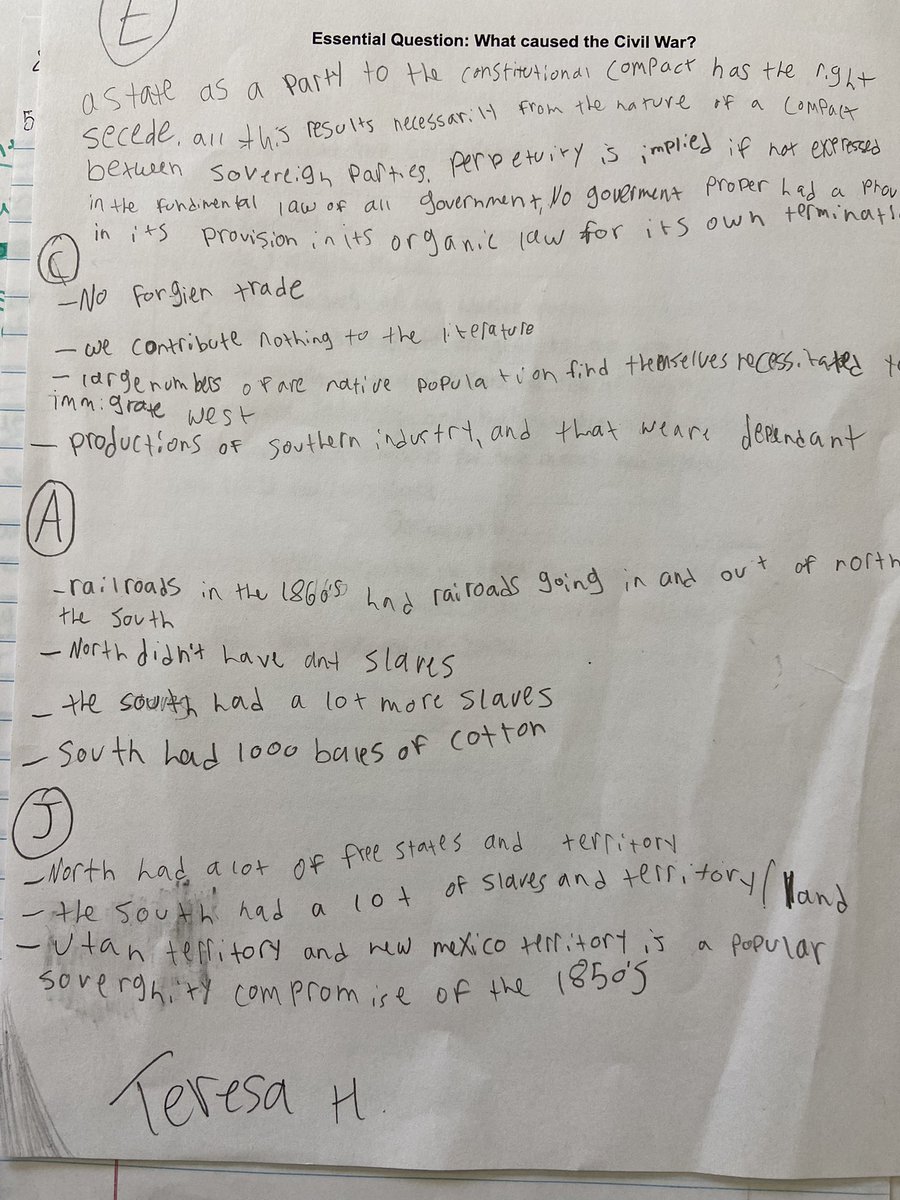 E
Essential Question: What caused the Civil War?
5
a state as a party to the constitutional compact has the right
secede. all this results necessarily from the nature of a compact
between sovereign parties. perpetuiry is implied if not expressed
in the fundimental law of all government, No goverment proper had a prov
in its provision in its organic law for its own terminati
C
-No forgien trade
- we contribute nothing to the literature
- large numbers of are native population find themselves necessitated to
immigrate west
- productions of southern industrt, and that we are dependant
A
-railroads in the 1860's had rairoads going in and out of north
the south
- North didn't have ant slaves
- the south had a lot more slaves
- South had 1000 bales of cotton
J
-North had a lot of free states and territory
- the south had a lot of slaves and territory/land
- Utah territory and new mexico territory is a popular
soverghity compromise of the 1850's
Teresa H.